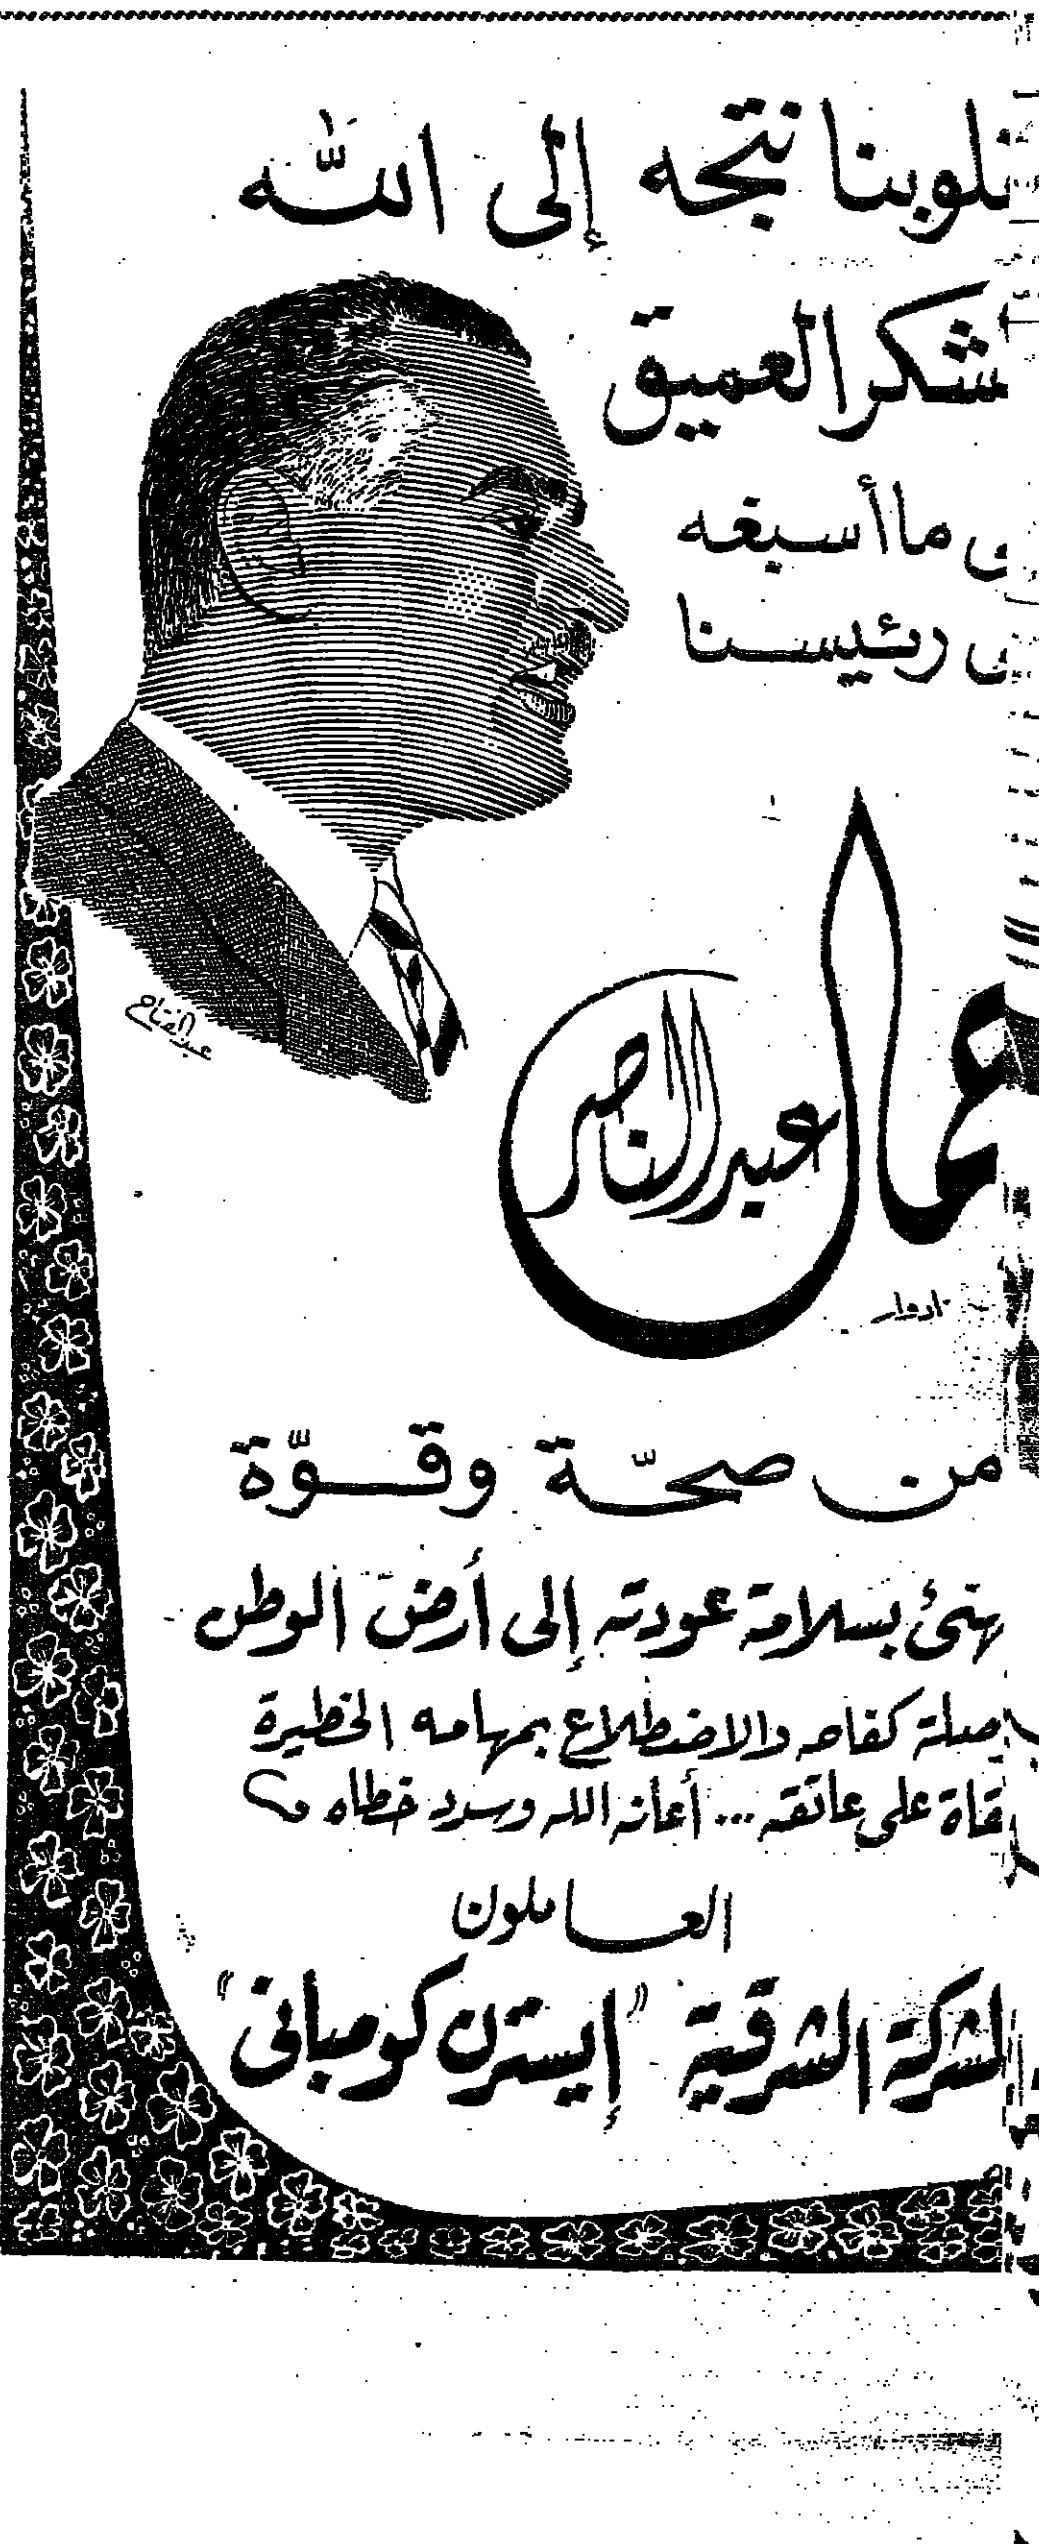 قلوبنا نتجه إلى الله
الشكر العميق
على ما أسبغه
على رئيسنا
جمال
عبد الناصر
عبد الفتاح
ادوار
من صحّة وقوّة
نهنئ بسلامة عودته إلى أرض الوطن
كفاحه والاضطلاع بمهامه الخطيرة
على عاتقه ... أعانه الله وسدد خطاه
العاملون
الشركة الشرقية "إيسترن كومباني"